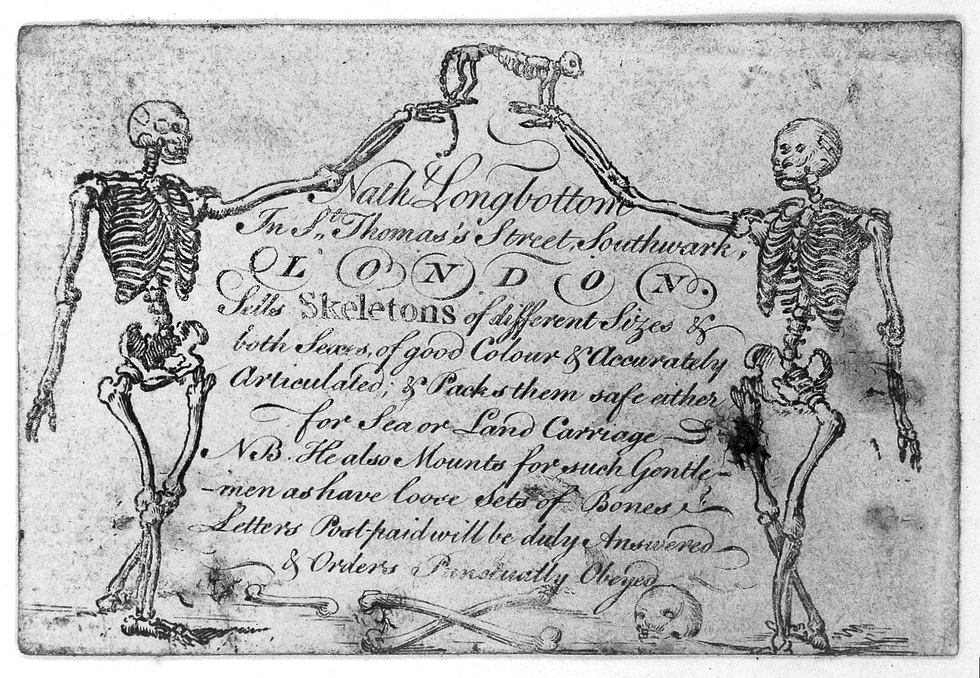 Nath.^l Longbottom
In S.^t Thomas's Street, Southwark,
LONDON.
Sells Skeletons of different Sizes &
both Sexes, of good Colour & Accurately
Articulated; & Packs them safe either
for Sea or Land Carriage
NB. He also Mounts for such Gentle-
-men as have loose Sets of Bones
Letters Post-paid will be duly Answered
& Orders Punctually Obeyed